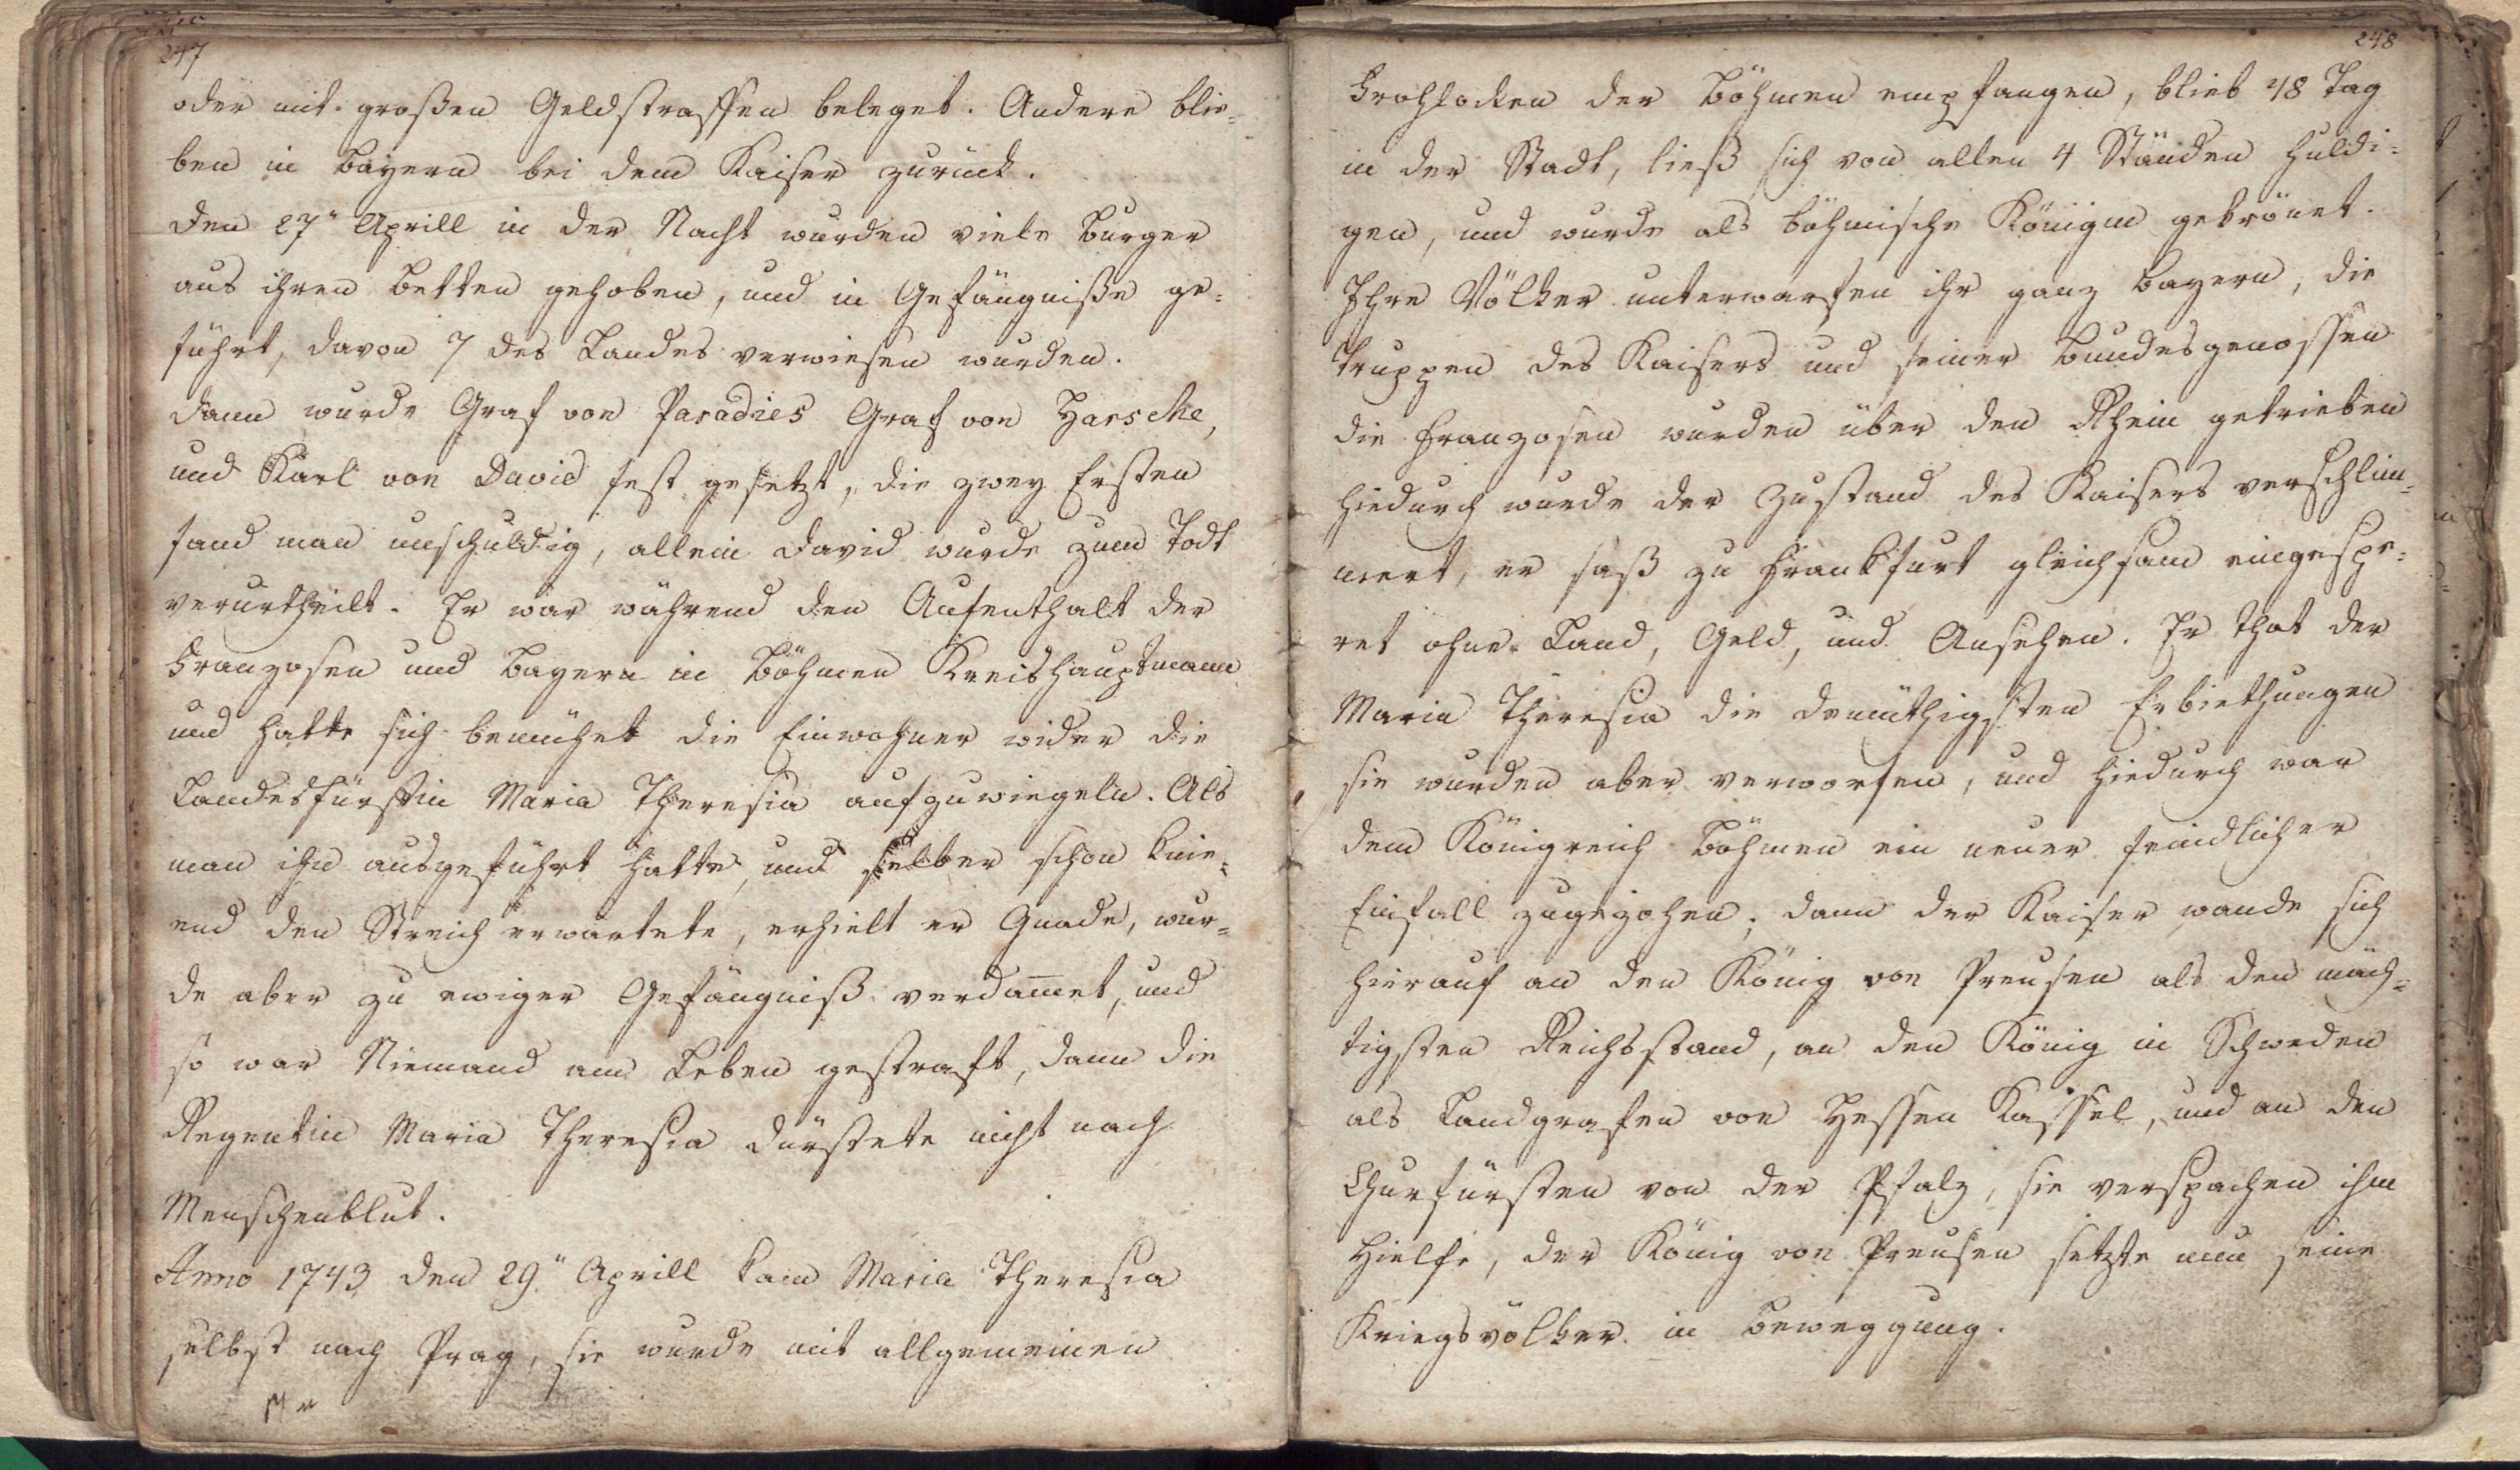 247
oder mit großen Geldstraffen beleget. Andere blie=
ben in Bayern bei dem Kaiser zurück.
Den 27" Aprill in der Nacht wurden viele Burger
aus ihren Betten gehoben, und in Gefängniße ge=
führt, davon 7 des Landes verwiesen wurden.
Dann wurde Graf von Paradies Graf von Harsche,
und Karl von David fest gesetzt, die zwey Ersten
fand man unschuldig, allein David wurde zum Todt
verurtheilt. Er war während den Aufenthalt der
Franzosen und Bayern in Böhmen Kreishauptmann
und hatte sich bemühet die Einwohner wider die
Landesfürstin Maria Theresia aufzuwiegeln. Als
man ihn ausgeführt hatte, und selber schon knie=
end den Streich erwartete, erhielt er Gnade, wur=
de aber zu ewiger Gefängniß verdam̅et, und
so war Niemand am Leben gestraft, dann die
Regentin Maria Theresia dürstete nicht nach
Menschenblut.
Anno 1743 den 29." Aprill kam Maria Theresia
selbst nach Prag, sie wurde mit allgemeinen
248
Frohlocken der Böhmen empfangen, blieb 48 Tag
in der Stadt, ließ sich von allen 4 Ständen huldi=
gen, und wurde als böhmische Königin gekrönet.
Ihre Völker unterwarfen ihr ganz Bayern, die
Truppen des Kaisers und seiner Bundesgenossen
die Franzosen wurden über den Rhein getrieben
hiedurch wurde der Zustand des Kaisers verschlim=
mert, er saß zu Frankfurt gleichsam eingespe=
ret ohne Land, Geld, und Ansehen. Er that der
Maria Theresia die demüthigsten Erbiethungen
sie wurden aber verworfen, und hiedurch war
dem Königreich Böhmen ein neuer feindlicher
Einfall zugezohen; dann der Kaiser wande sich
hierauf an den König von Preusen als den mäch=
tigsten Reichsstand, an den König in Schweden
als Landgrafen von Hessen Kassel, und an den
Churfürsten von der Pfalz, sie verspachen ihm
Hielfe, der König von Preusen setzte nun seine
Kriegsvölker in Beweggung.